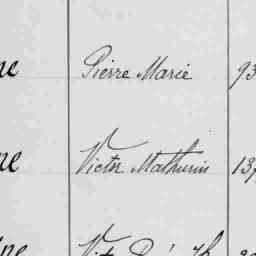 ne Pierre Marie 93
ne Victor Mathurin 137